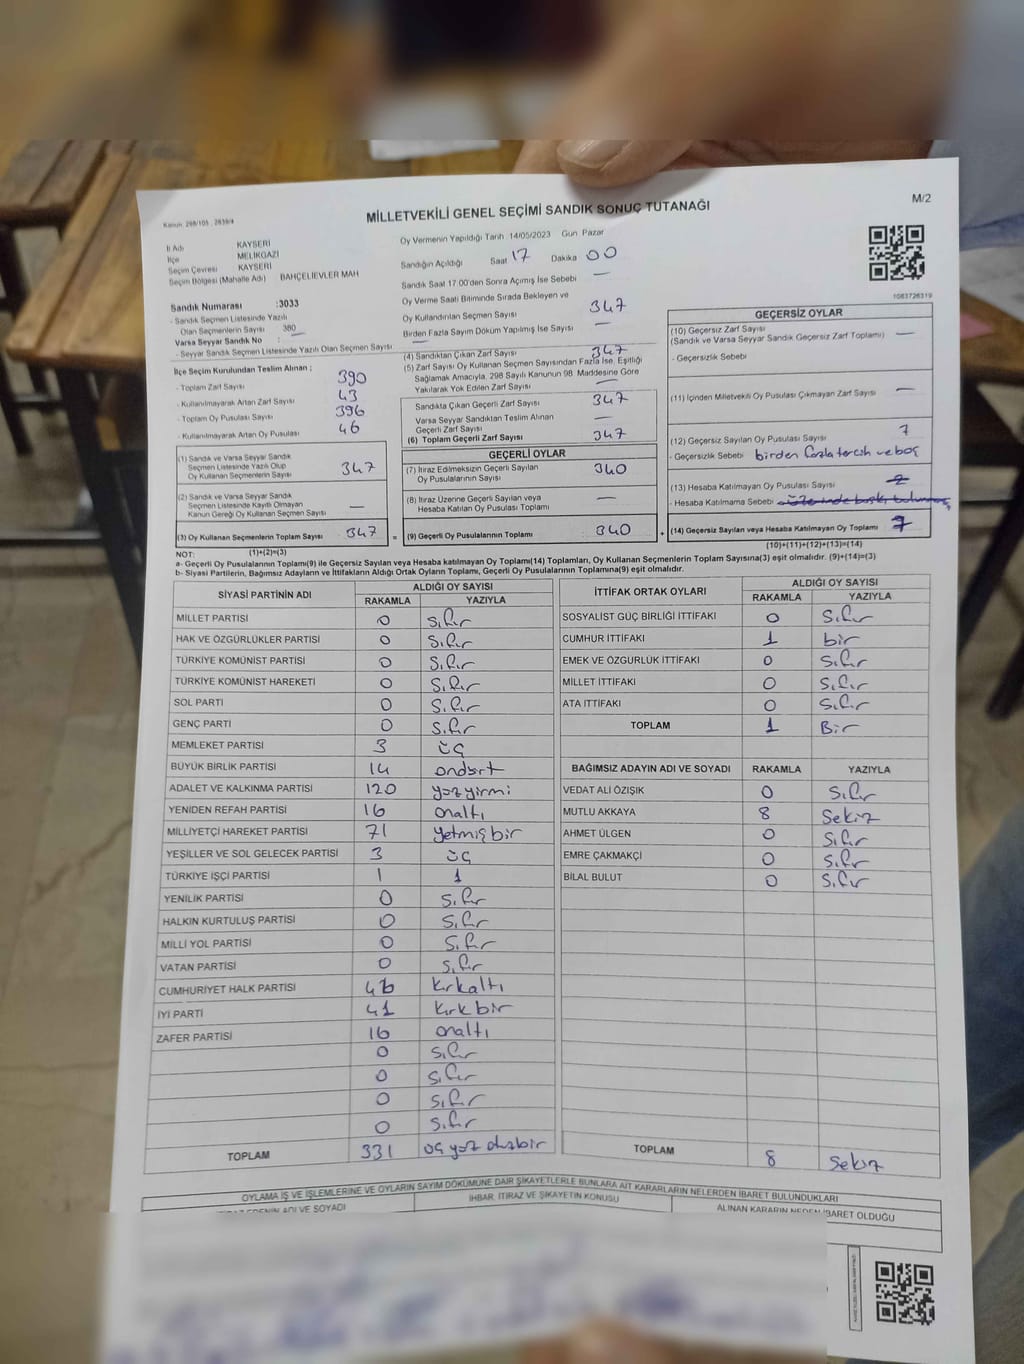 M/2
Kanun: 298/105 , 2839/4
MİLLETVEKİLİ GENEL SEÇİMİ SANDIK SONUÇ TUTANAĞI
İl Adı KAYSERİ
İlçe MELİKGAZİ
Seçim Çevresi KAYSERİ
Seçim Bölgesi (Mahalle Adı) BAHÇELİEVLER MAH
Sandık Numarası :3033
- Sandık Seçmen Listesinde Yazılı
Olan Seçmenlerin Sayısı 380
Varsa Seyyar Sandık No : —
- Seyyar Sandık Seçmen Listesinde Yazılı Olan Seçmen Sayısı —
İlçe Seçim Kurulundan Teslim Alınan ;
- Toplam Zarf Sayısı 390
- Kullanılmayarak Artan Zarf Sayısı 43
- Toplam Oy Pusulası Sayısı 396
- Kullanılmayarak Artan Oy Pusulası 46
(1) Sandık ve Varsa Seyyar Sandık
Seçmen Listesinde Yazılı Olup
Oy Kullanan Seçmenlerin Sayısı 347
(2) Sandık ve Varsa Seyyar Sandık
Seçmen Listesinde Kayıtlı Olmayan
Kanun Gereği Oy Kullanan Seçmen Sayısı —
(3) Oy Kullanan Seçmenlerin Toplam Sayısı 347
(1)+(2)=(3)
Oy Vermenin Yapıldığı Tarih 14/05/2023 Gün Pazar
Sandığın Açıldığı Saat 17 Dakika 00
Sandık Saat 17.00'den Sonra Açımış İse Sebebi —
Oy Verme Saati Bitiminde Sırada Bekleyen ve
Oy Kullandırılan Seçmen Sayısı 347
Birden Fazla Sayım Döküm Yapılmış İse Sayısı —
(4) Sandıktan Çıkan Zarf Sayısı 347
(5) Zarf Sayısı Oy Kullanan Seçmen Sayısından Fazla İse, Eşitliği
Sağlamak Amacıyla, 298 Sayılı Kanunun 98. Maddesine Göre
Yakılarak Yok Edilen Zarf Sayısı —
Sandıkta Çıkan Geçerli Zarf Sayısı 347
Varsa Seyyar Sandıktan Teslim Alınan
Geçerli Zarf Sayısı —
(6) Toplam Geçerli Zarf Sayısı 347
GEÇERLİ OYLAR
(7) İtiraz Edilmeksizin Geçerli Sayılan
Oy Pusulalarının Sayısı 340
(8) İtiraz Üzerine Geçerli Sayılan veya
Hesaba Katılan Oy Pusulası Toplamı —
= (9) Geçerli Oy Pusulalarının Toplamı 340 +
1083726319
GEÇERSİZ OYLAR
(10) Geçersiz Zarf Sayısı
(Sandık ve Varsa Seyyar Sandık Geçersiz Zarf Toplamı) —
- Geçersizlik Sebebi
(11) İçinden Milletvekili Oy Pusulası Çıkmayan Zarf Sayısı —
(12) Geçersiz Sayılan Oy Pusulası Sayısı 7
- Geçersizlik Sebebi birden fazla tercih ve boş
(13) Hesaba Katılmayan Oy Pusulası Sayısı
- Hesaba Katılmama Sebebi
(14) Geçersiz Sayılan veya Hesaba Katılmayan Oy Toplamı 7
(10)+(11)+(12)+(13)=(14)
NOT:
a- Geçerli Oy Pusulasının Toplamı(9) ile Geçersiz Sayılan veya Hesaba katılmayan Oy Toplamı(14) Toplamları, Oy Kullanan Seçmenlerin Toplam Sayısına(3) eşit olmalıdır. (9)+(14)=(3)
b- Siyasi Partilerin, Bağımsız Adayların ve İttifakların Aldığı Ortak Oyların Toplamı, Geçerli Oy Pusulalarının Toplamına(9) eşit olmalıdır.
SİYASİ PARTİNİN ADI ALDIĞI OY SAYISI
RAKAMLA YAZIYLA
MİLLET PARTİSİ 0 sıfır
HAK VE ÖZGÜRLÜKLER PARTİSİ 0 sıfır
TÜRKİYE KOMÜNİST PARTİSİ 0 sıfır
TÜRKİYE KOMÜNİST HAREKETİ 0 sıfır
SOL PARTİ 0 sıfır
GENÇ PARTİ 0 sıfır
MEMLEKET PARTİSİ 3 üç
BÜYÜK BİRLİK PARTİSİ 14 ondört
ADALET VE KALKINMA PARTİSİ 120 yüzyirmi
YENİDEN REFAH PARTİSİ 16 onaltı
MİLLİYETÇİ HAREKET PARTİSİ 71 yetmişbir
YEŞİLLER VE SOL GELECEK PARTİSİ 3 üç
TÜRKİYE İŞÇİ PARTİSİ 1 1
YENİLİK PARTİSİ 0 sıfır
HALKIN KURTULUŞ PARTİSİ 0 sıfır
MİLLİ YOL PARTİSİ 0 sıfır
VATAN PARTİSİ 0 sıfır
CUMHURİYET HALK PARTİSİ 46 kırkaltı
İYİ PARTİ 41 kırkbir
ZAFER PARTİSİ 16 onaltı
0 sıfır
0 sıfır
0 sıfır
0 sıfır
TOPLAM 331 üç yüz otuzbir
İTTİFAK ORTAK OYLARI ALDIĞI OY SAYISI
RAKAMLA YAZIYLA
SOSYALİST GÜÇ BİRLİĞİ İTTİFAKI 0 sıfır
CUMHUR İTTİFAKI 1 bir
EMEK VE ÖZGÜRLÜK İTTİFAKI 0 sıfır
MİLLET İTTİFAKI 0 sıfır
ATA İTTİFAKI 0 sıfır
TOPLAM 1 Bir
BAĞIMSIZ ADAYIN ADI VE SOYADI RAKAMLA YAZIYLA
VEDAT ALİ ÖZIŞIK 0 sıfır
MUTLU AKKAYA 8 sekiz
AHMET ÜLGEN 0 sıfır
EMRE ÇAKMAKÇİ 0 sıfır
BİLAL BULUT 0 sıfır
TOPLAM 8 sekiz
OYLAMA İŞ VE İŞLEMLERİNE VE OYLARIN SAYIM DÖKÜMÜNE DAİR ŞİKAYETLERLE BUNLARA AİT KARARLARIN NELERDEN İBARET BULUNDUKLARI
ADI VE SOYADI
İHBAR, İTİRAZ VE ŞİKAYETİN KONUSU
ALINAN KARARIN NEDEN İBARET OLDUĞU